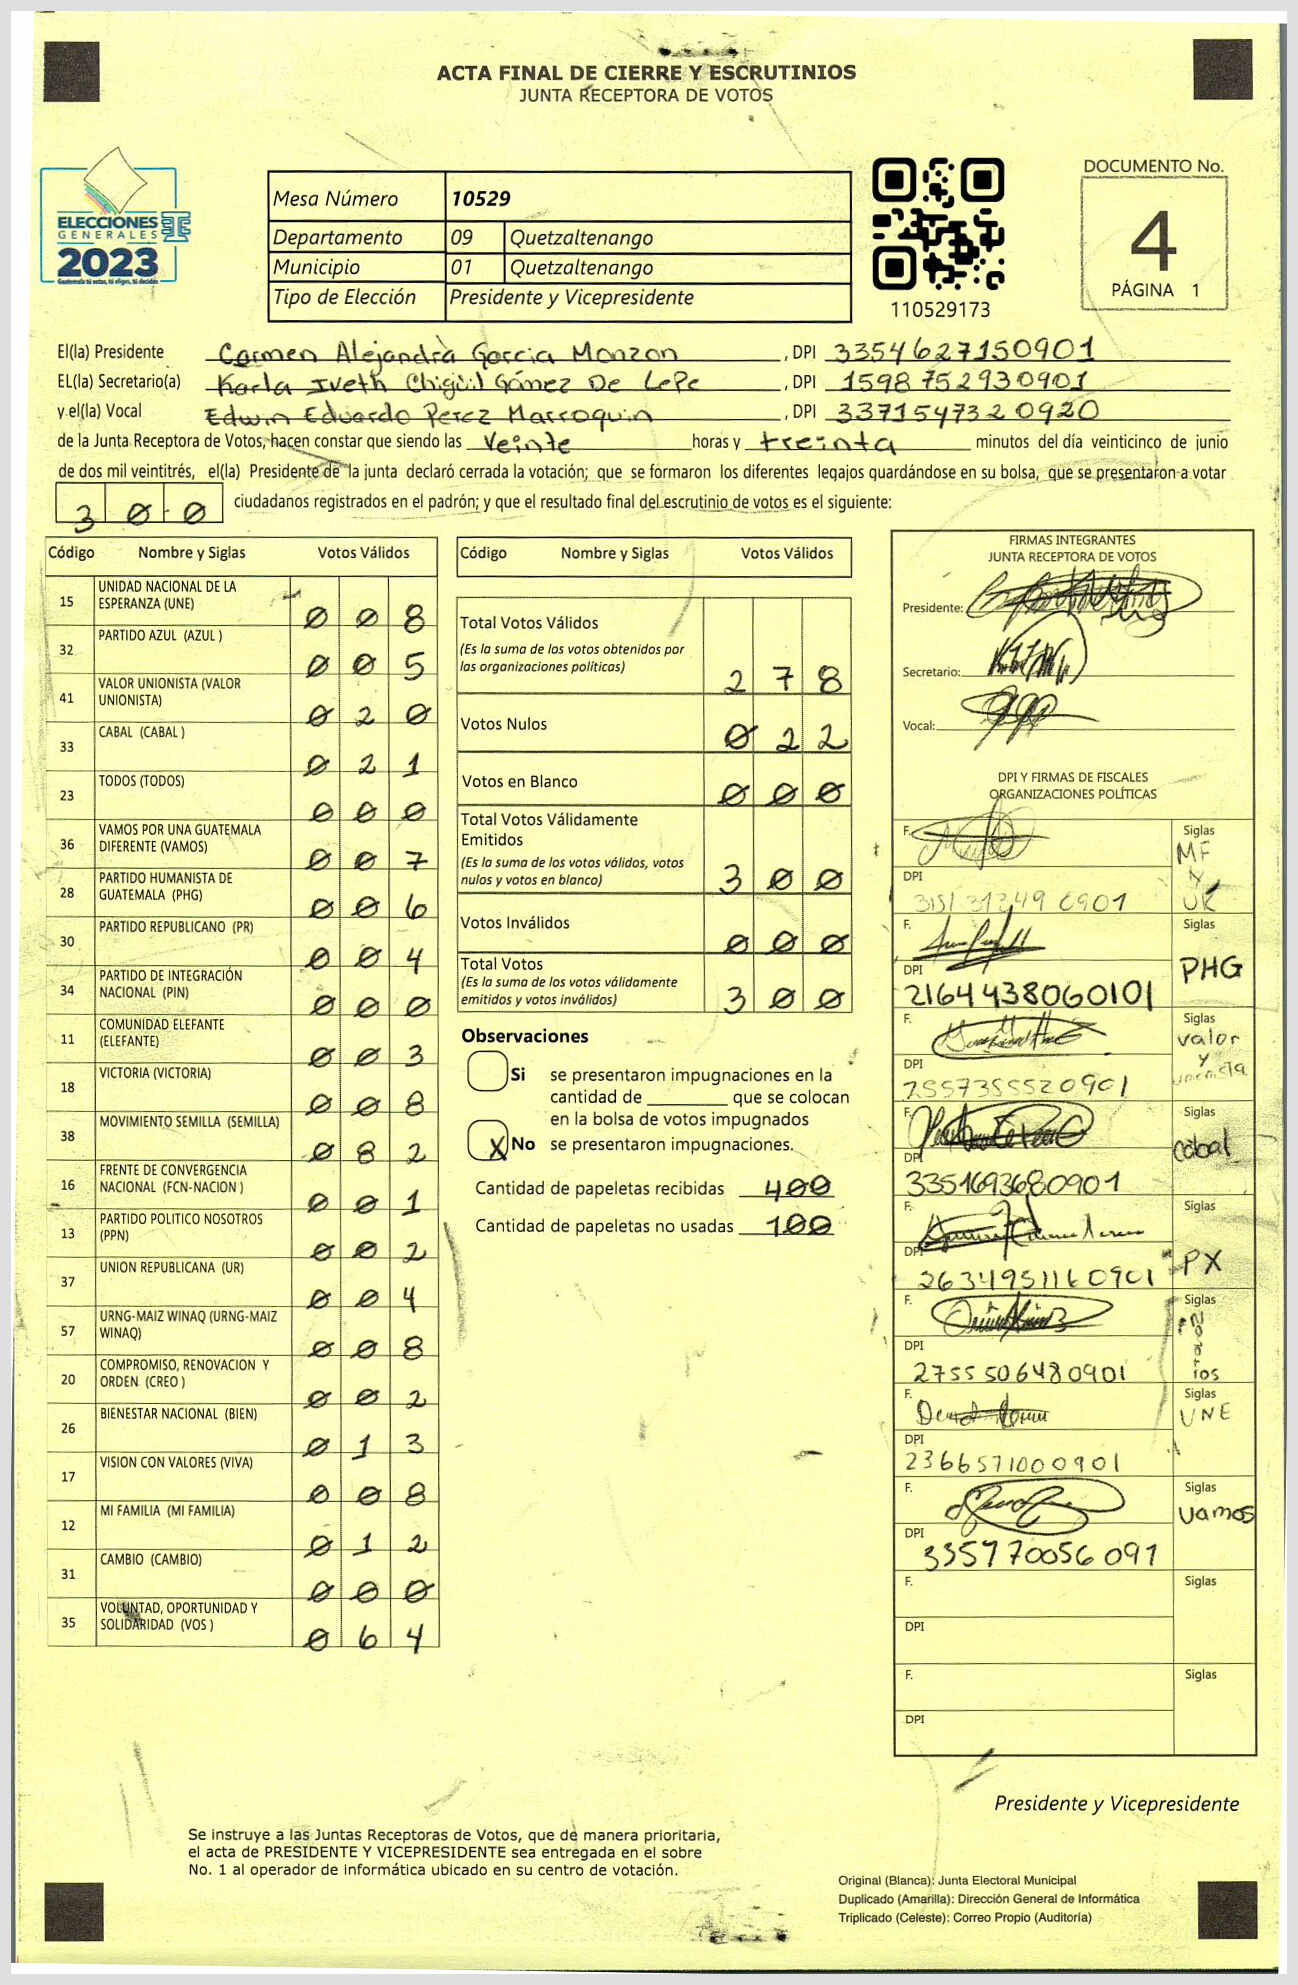 ACTA FINAL DE CIERRE Y ESCRUTINIOS
JUNTA RECEPTORA DE VOTOS
ELECCIONES
GENERALES
2023
Guatemala tú votas, tú eliges, tú decides
Mesa Número 10529
Departamento 09 Quetzaltenango
Municipio 01 Quetzaltenango
Tipo de Elección Presidente y Vicepresidente
110529173
DOCUMENTO No.
4
PÁGINA 1
El(la) Presidente Carmen Alejandra Garcia Monzon , DPI 3354627150901
EL(la) Secretario(a) Karla Iveth Chigüil Gámez De LePe , DPI 1598752930901
y el(la) Vocal Edwin Eduardo Perez Marroquin , DPI 3371547320920
de la Junta Receptora de Votos, hacen constar que siendo las veinte horas y treinta minutos del día veinticinco de junio
de dos mil veintitrés, el(la) Presidente de la junta declaró cerrada la votación; que se formaron los diferentes legajos guardándose en su bolsa, que se presentaron a votar
300 ciudadanos registrados en el padrón; y que el resultado final del escrutinio de votos es el siguiente:
Código Nombre y Siglas Votos Válidos
15 UNIDAD NACIONAL DE LA ESPERANZA (UNE) 008
32 PARTIDO AZUL (AZUL ) 005
41 VALOR UNIONISTA (VALOR UNIONISTA) 020
33 CABAL (CABAL ) 021
23 TODOS (TODOS) 000
36 VAMOS POR UNA GUATEMALA DIFERENTE (VAMOS) 007
28 PARTIDO HUMANISTA DE GUATEMALA (PHG) 006
30 PARTIDO REPUBLICANO (PR) 004
34 PARTIDO DE INTEGRACIÓN NACIONAL (PIN) 000
11 COMUNIDAD ELEFANTE (ELEFANTE) 003
18 VICTORIA (VICTORIA) 008
38 MOVIMIENTO SEMILLA (SEMILLA) 082
16 FRENTE DE CONVERGENCIA NACIONAL (FCN-NACION ) 001
13 PARTIDO POLITICO NOSOTROS (PPN) 002
37 UNION REPUBLICANA (UR) 004
57 URNG-MAIZ WINAQ (URNG-MAIZ WINAQ) 008
20 COMPROMISO, RENOVACION Y ORDEN (CREO ) 002
26 BIENESTAR NACIONAL (BIEN) 013
17 VISION CON VALORES (VIVA) 008
12 MI FAMILIA (MI FAMILIA) 012
31 CAMBIO (CAMBIO) 000
35 VOLUNTAD, OPORTUNIDAD Y SOLIDARIDAD (VOS ) 064
Código Nombre y Siglas Votos Válidos
Total Votos Válidos 278
(Es la suma de los votos obtenidos por
las organizaciones políticas)
Votos Nulos 022
Votos en Blanco 000
Total Votos Válidamente
Emitidos
(Es la suma de los votos válidos, votos
nulos y votos en blanco) 300
Votos Inválidos 000
Total Votos
(Es la suma de los votos válidamente
emitidos y votos inválidos) 300
Observaciones
Si se presentaron impugnaciones en la
cantidad de ________ que se colocan
en la bolsa de votos impugnados
X No se presentaron impugnaciones.
Cantidad de papeletas recibidas 400
Cantidad de papeletas no usadas 100
FIRMAS INTEGRANTES
JUNTA RECEPTORA DE VOTOS
Presidente:
Secretario:
Vocal:
DPI Y FIRMAS DE FISCALES
ORGANIZACIONES POLÍTICAS
F. Siglas MF Y UR
DPI 3151 31249 0901
F. Siglas PHG
DPI 2164438060101
F. Siglas valor y unionista
DPI 2557355520901
F. Siglas cabal
DPI 3351693680901
F. Siglas PX
DPI 2634951160901
F. Siglas
DPI 2755506480901
F. Siglas UNE
DPI 2366571000901
F. Siglas vamos
DPI 335770056091
F. Siglas
DPI
F. Siglas
DPI
Presidente y Vicepresidente
Se instruye a las Juntas Receptoras de Votos, que de manera prioritaria,
el acta de PRESIDENTE Y VICEPRESIDENTE sea entregada en el sobre
No. 1 al operador de informática ubicado en su centro de votación.
Original (Blanca): Junta Electoral Municipal
Duplicado (Amarilla): Dirección General de Informática
Triplicado (Celeste): Correo Propio (Auditoría)